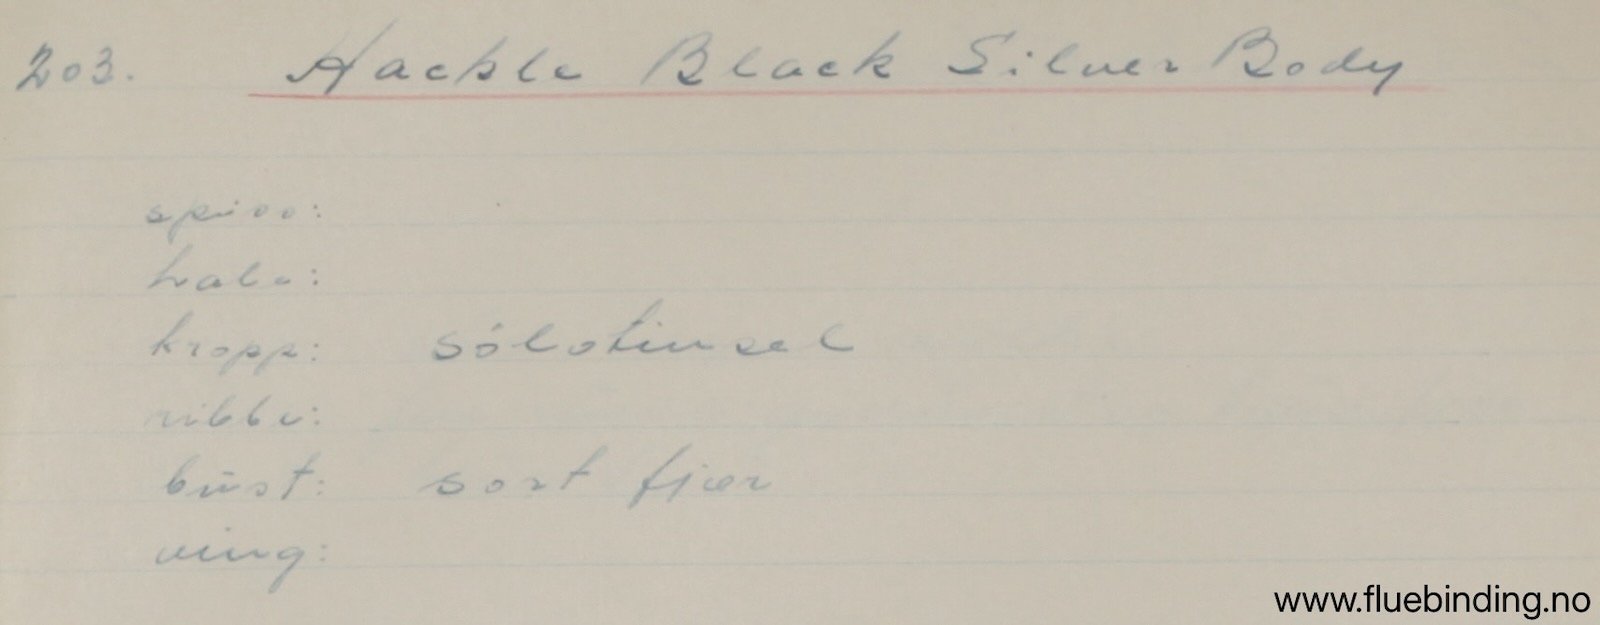 203. Hackle Black Silver Body
spiss:
hale:
kropp: sølvtinsel
ribbe:
bust: sort fjær
ving:
www.fluebinding.no